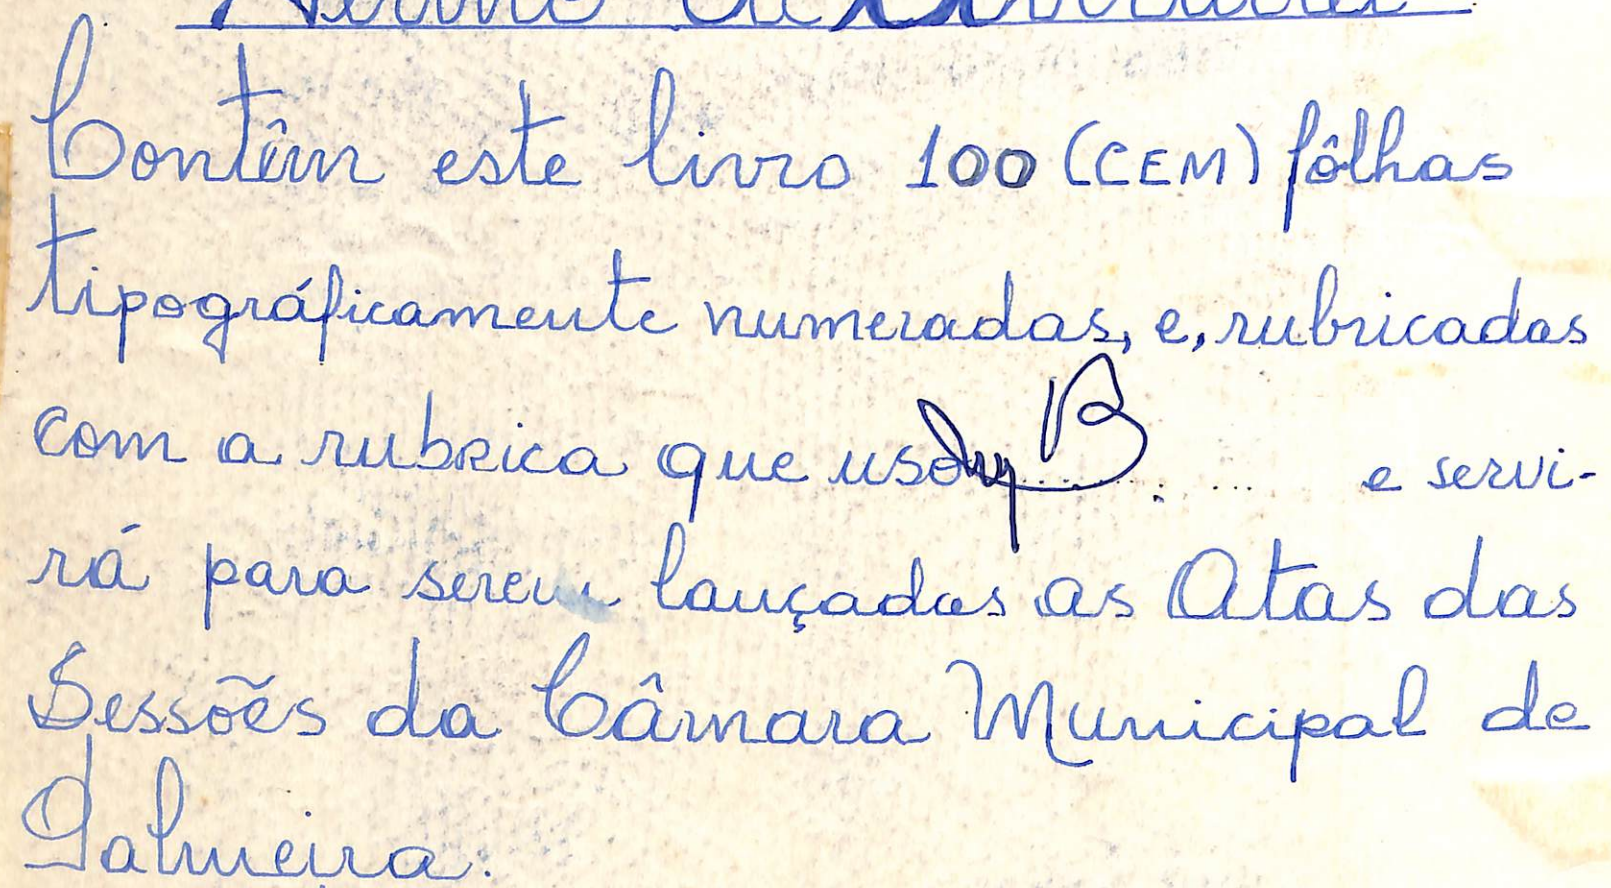 Termo de Abertura
Contêm este livro 100 (CEM) fôlhas
tipográficamente numeradas, e, rubricadas
com a rubrica que uso ............ e servi-
rá para serem lançadas as Atas das
Sessões da Câmara Municipal de
Palmeira.